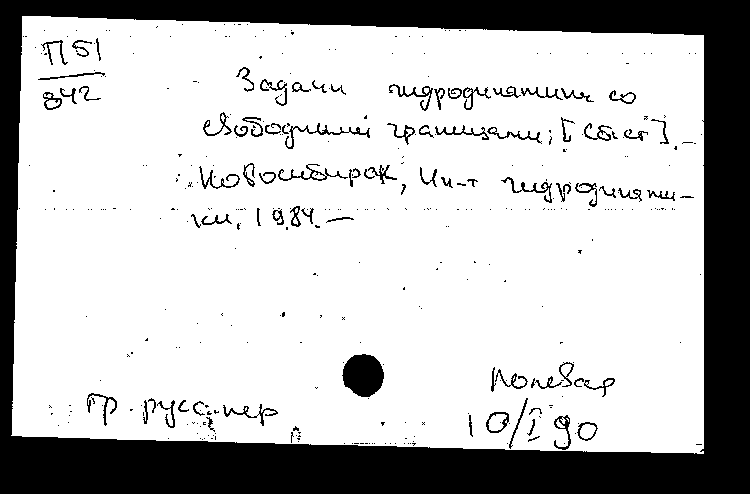 П51
842
Задачи гидродинамики со
свободными границами; [Сб.ст.]. —
Новосибирск, Ин-т гидродинами-
ки, 1984. —
гр. русс. пер
Полевая
10/I 90